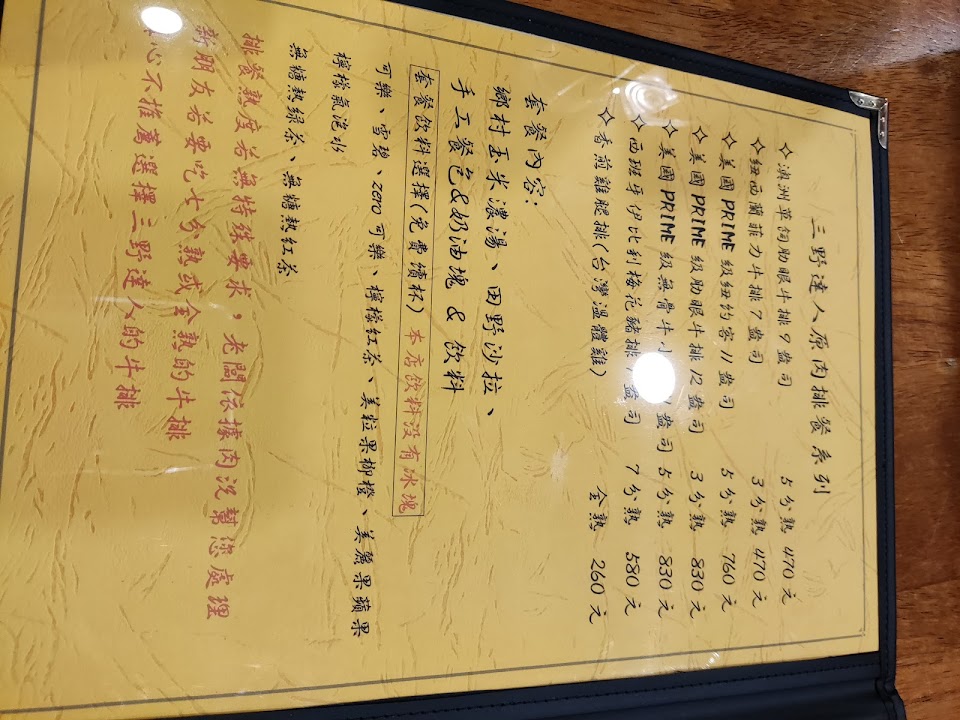 三野達人原肉排餐系列
✧澳洲草飼肋眼牛排9盎司 5分熟 470元
✧紐西蘭菲力牛排7盎司 3分熟 470元
✧美國PRIME級紐約客11盎司 5分熟 760元
✧美國PRIME級肋眼牛排12盎司 3分熟 830元
✧美國PRIME級無骨牛小 盎司 5分熟 830元
✧西班牙伊比利梅花豬排 盎司 7分熟 580元
✧香煎雞腿排(台灣溫體雞) 全熟 260元
套餐內容:
鄉村玉米濃湯、田野沙拉、
手工餐包&奶油塊&飲料
套餐飲料選擇(免費續杯) 本店飲料沒有冰塊
可樂、雪碧、zero可樂、檸檬紅茶、美粒果柳橙、美麗果蘋果
檸檬氣泡水
無糖熱綠茶、無糖熱紅茶
排餐熟度若無特殊要求，老闆依據肉況幫您處理
新朋友若要吃七分熟或全熟的牛排
心不推薦選擇三野達人的牛排